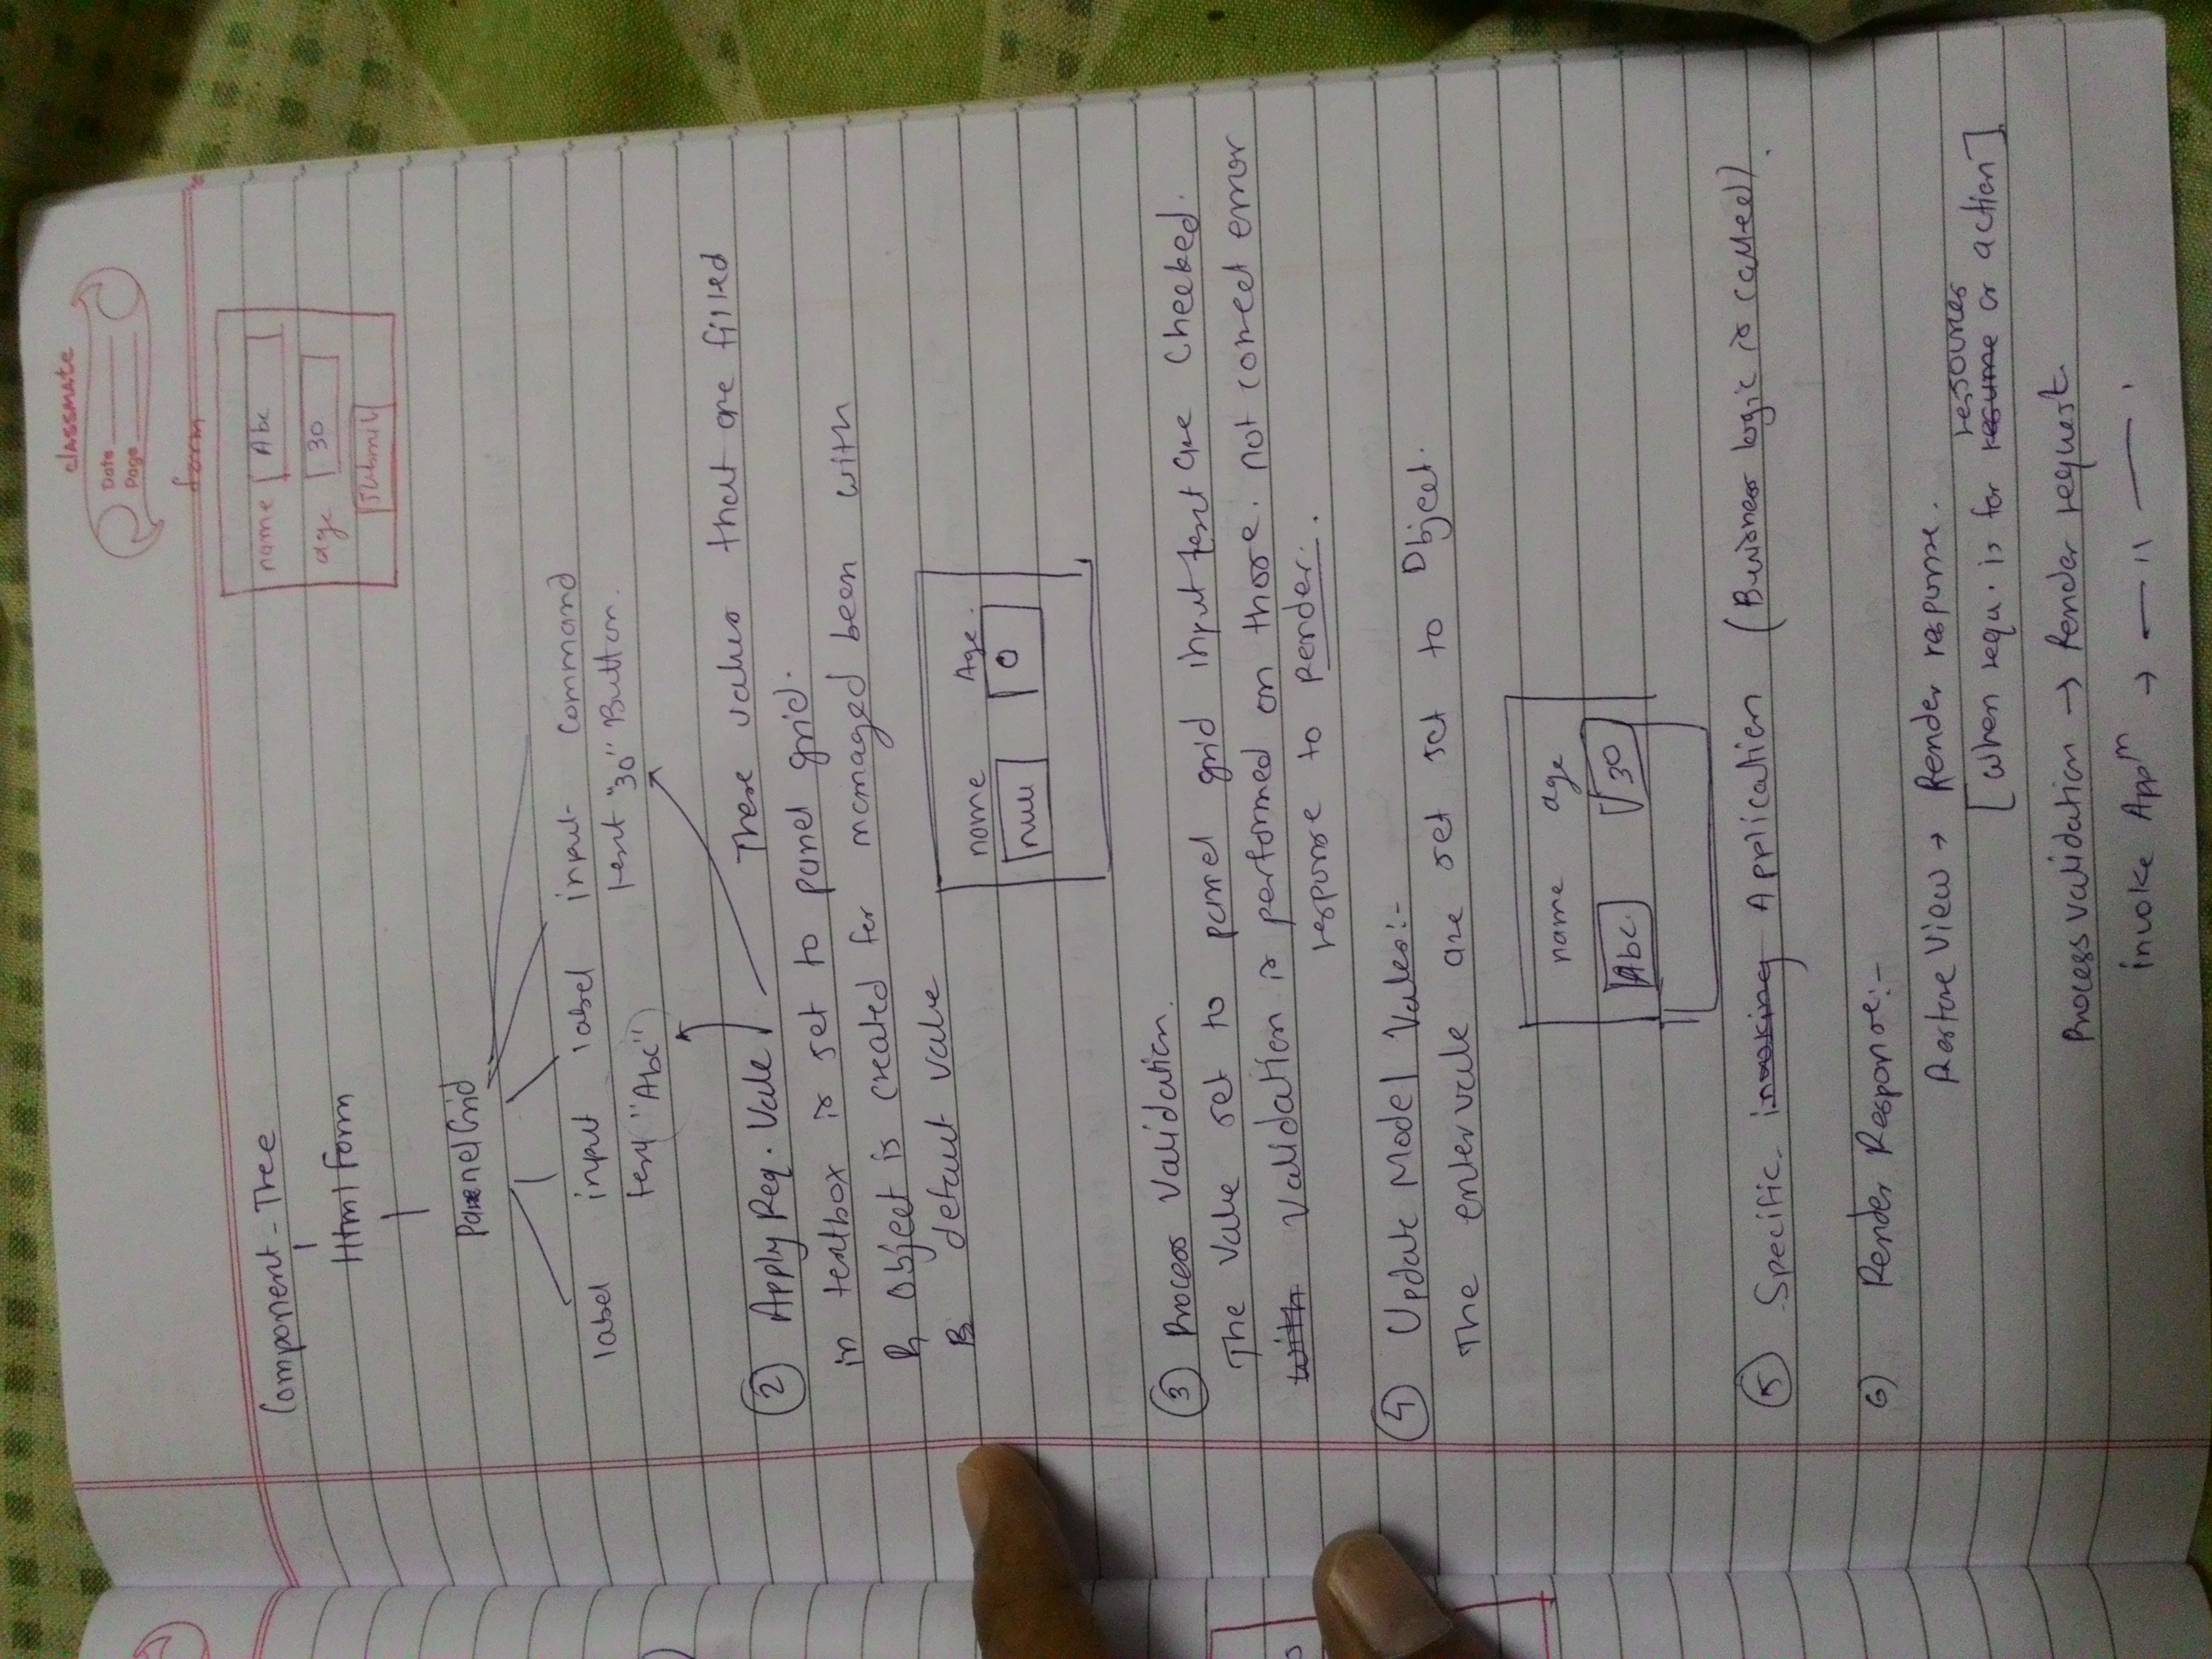 classmate
Date
Page
form
name Abc
age 30
Submit
Component-Tree
Html form
PanenelGrid
label input label input- Command
text "Abc" text "30" Button.
② Apply Req. Vale These values that are filled
in textbox is set to panel grid.
Object is created for managed bean with
defaut value
name Age.
null 0
③ Process Validation.
The Value set to pannel grid input text are Checked.
with Validation is performed on those. not correct error
response to Render.
④ Update Model Vales:-
The enter vale are set set to Object.
name age
Abc. 30
⑤ Specific invoking Application (Business logic is called)
6) Render Response:-
Restore View → Render response.
resources
[when requ. is for resume or action]
Process validation → Render request.
invoke Appⁿ → — 11 —